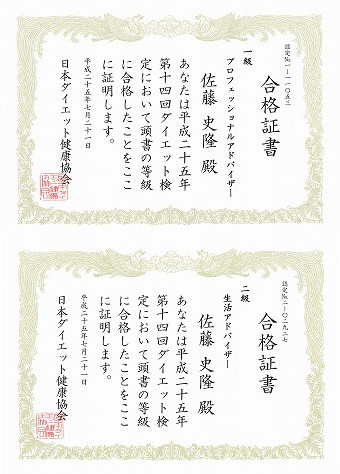 認定No.一-一一〇五三
合格証書
一級
プロフェッショナルアドバイザー
佐藤 史隆 殿
あなたは平成二十五年
第十四回ダイエット検
定において頭書の等級
に合格したことをここ
に証明します。
平成二十五年七月二十一日
日本ダイエット健康協会
認定No.二-〇-二九二七
合格証書
二級
生活アドバイザー
佐藤 史隆 殿
あなたは平成二十五年
第十四回ダイエット検
定において頭書の等級
に合格したことをここ
に証明します。
平成二十五年七月二十一日
日本ダイエット健康協会